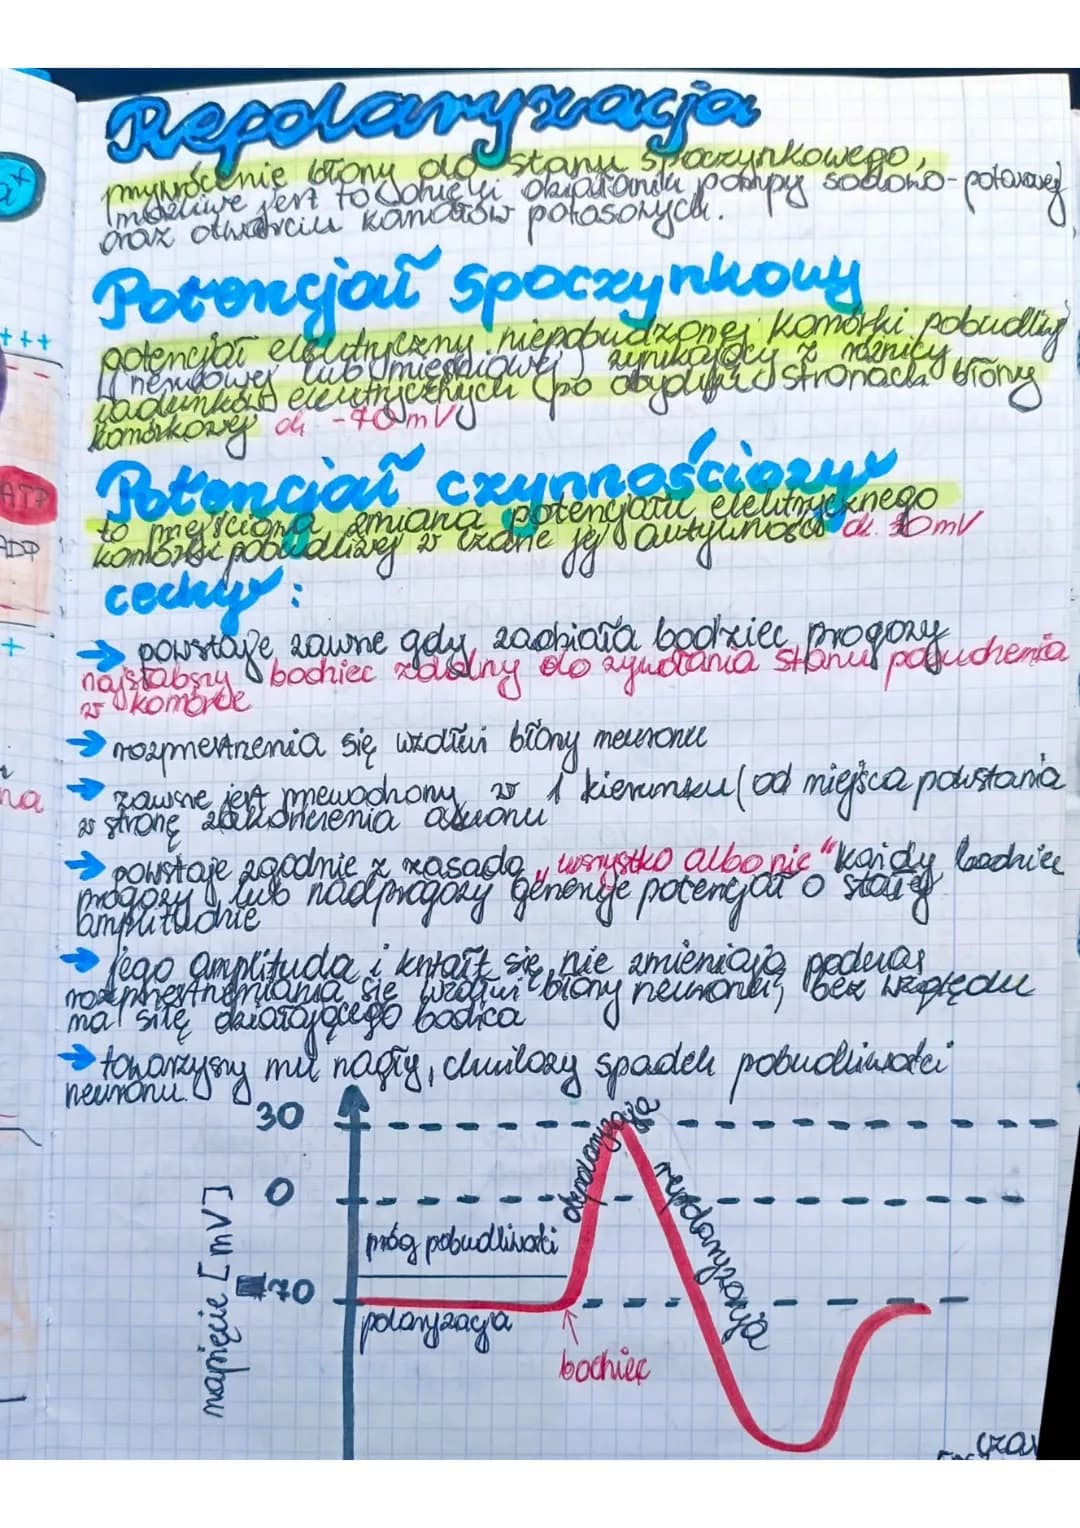 Repolaryzacja
przywrócenie błony do stanu spoczynkowego,
możliwe jest to dzięki działaniu pompy sodowo-potasowej
oraz otwarciu kanałów potasowych.
Potencjał spoczynkowy
potencjał elektryczny niepobudzonej komórki pobudliwej
(nerwowej lub mięśniowej) wynikający z różnicy
ładunków elektrycznych po obydwu stronach błony
komórkowej ok -70 mV
Potencjał czynnościowy
to przejściowa zmiana potencjału elektrycznego
komórki pobudliwej w czasie jej aktywności ok. mV
cechy:
→ powstaje zawsze gdy zadziała bodziec progowy
najsłabszy bodziec zdolny do wywołania stanu pobudzenia
w komórce
→ rozprzestrzenia się wzdłuż błony neuronu
→ zawsze jest przewodzony w 1 kierunku (od miejsca powstania
w stronę zakończenia aksonu
→ powstaje zgodnie z zasadą „wszystko albo nic" każdy bodziec
progowy lub nadprogowy generuje potencjał o stałej
amplitudzie
→ jego amplituda i kształt się nie zmieniają podczas
rozprzestrzeniania się wzdłuż błony neuronu, bez względu
na siłę działającego bodźca
→ towarzyszy mu nagły, chwilowy spadek pobudliwości
neuronu.
30
0
70
napięcie [mV]
próg pobudliwości
polaryzacja
depolaryzacja
repolaryzacja
bodziec
czas
+++
ATP
ADP
+
na